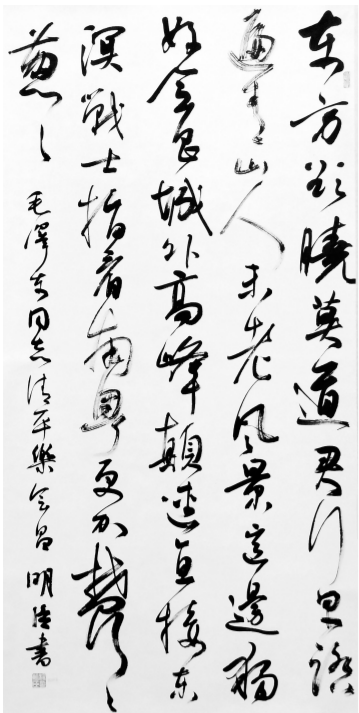 东方欲曉莫道君行早踏
遍青山人未老风景這邊獨
好会昌城外高峰顛連直接东
溟戰士指看南粵更加鬱々
葱々 毛澤东同志清平樂会昌 明 書